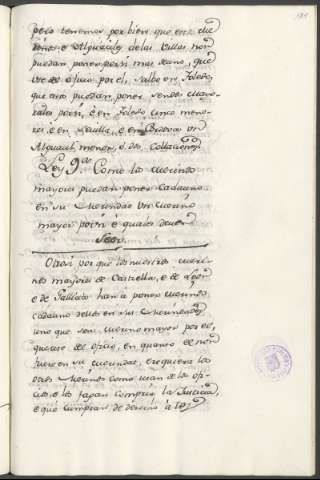 pero tenemos por bien que este me
rino e Alguacil de las villas non
puedan poner por si mas de uno, que
use de oficio por el, salbo en Toledo,
que puedan poner
por si, è en Toledo cinco meno
res, è en Sevilla, è en Cordova un
Alguacil menor, ò dos,
Ley 9. Como los Merinos
mayores puedan poner cada uno
en su Merindad un Merino
mayor por si è quales deven
Seer.
Otrosi por que los nuestros Meri
nos mayores de Castiella, e de Leon
e de Gallicia han a poner Merinos
cada uno dellos en sus Merindades
uno que sea Merino mayor por el,
que use del oficio, en quanto el non
fuere en su Merindat, e requiera los
otros Merinos como usan de los ofi
cios, e les fagan complir la Justicia,
e que cumplan de derecho à los